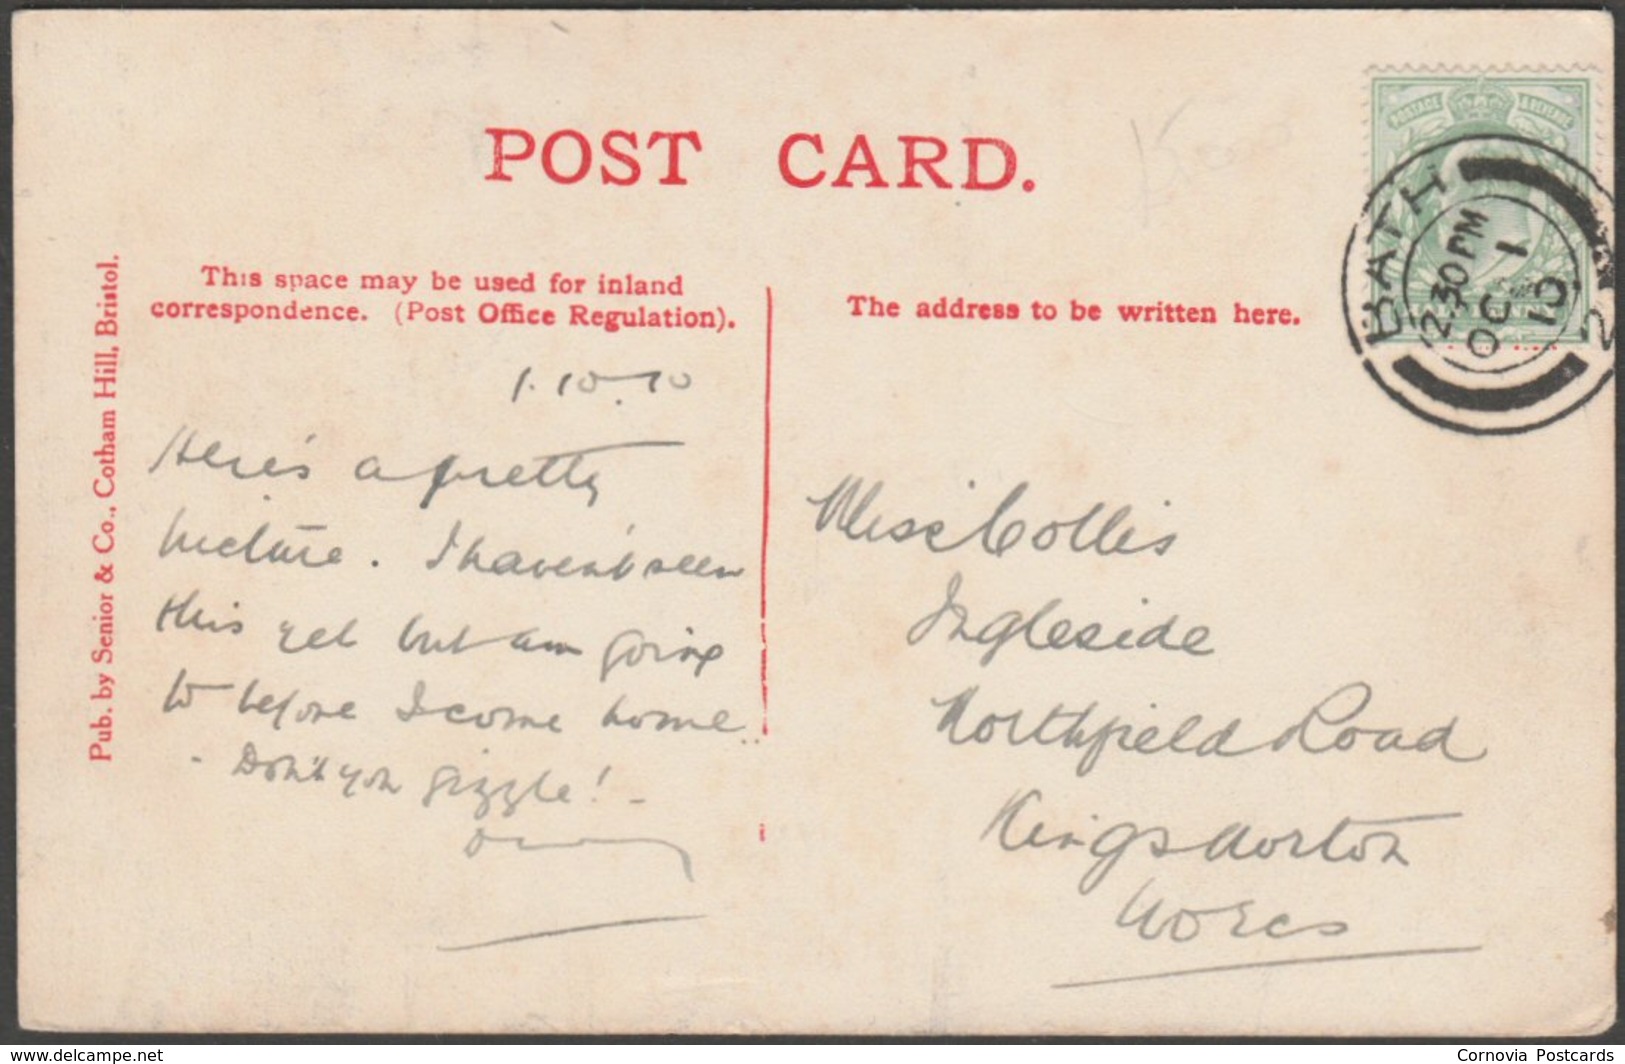 POST CARD.
POSTAGE & REVENUE
BATH
2.30 PM
OC 1
10
2
Pub. by Senior & Co., Cotham Hill, Bristol.
This space may be used for inland
correspondence. (Post Office Regulation).
The address to be written here.
1.10.10
Here's a pretty
picture. I haven't seen
this yet but am going
to before I come home.
- Don't you giggle! -
Miss Collis
Ingleside
Northfield Road
Kings Norton
Worcs
www.delcampe.net
Cornovia Postcards